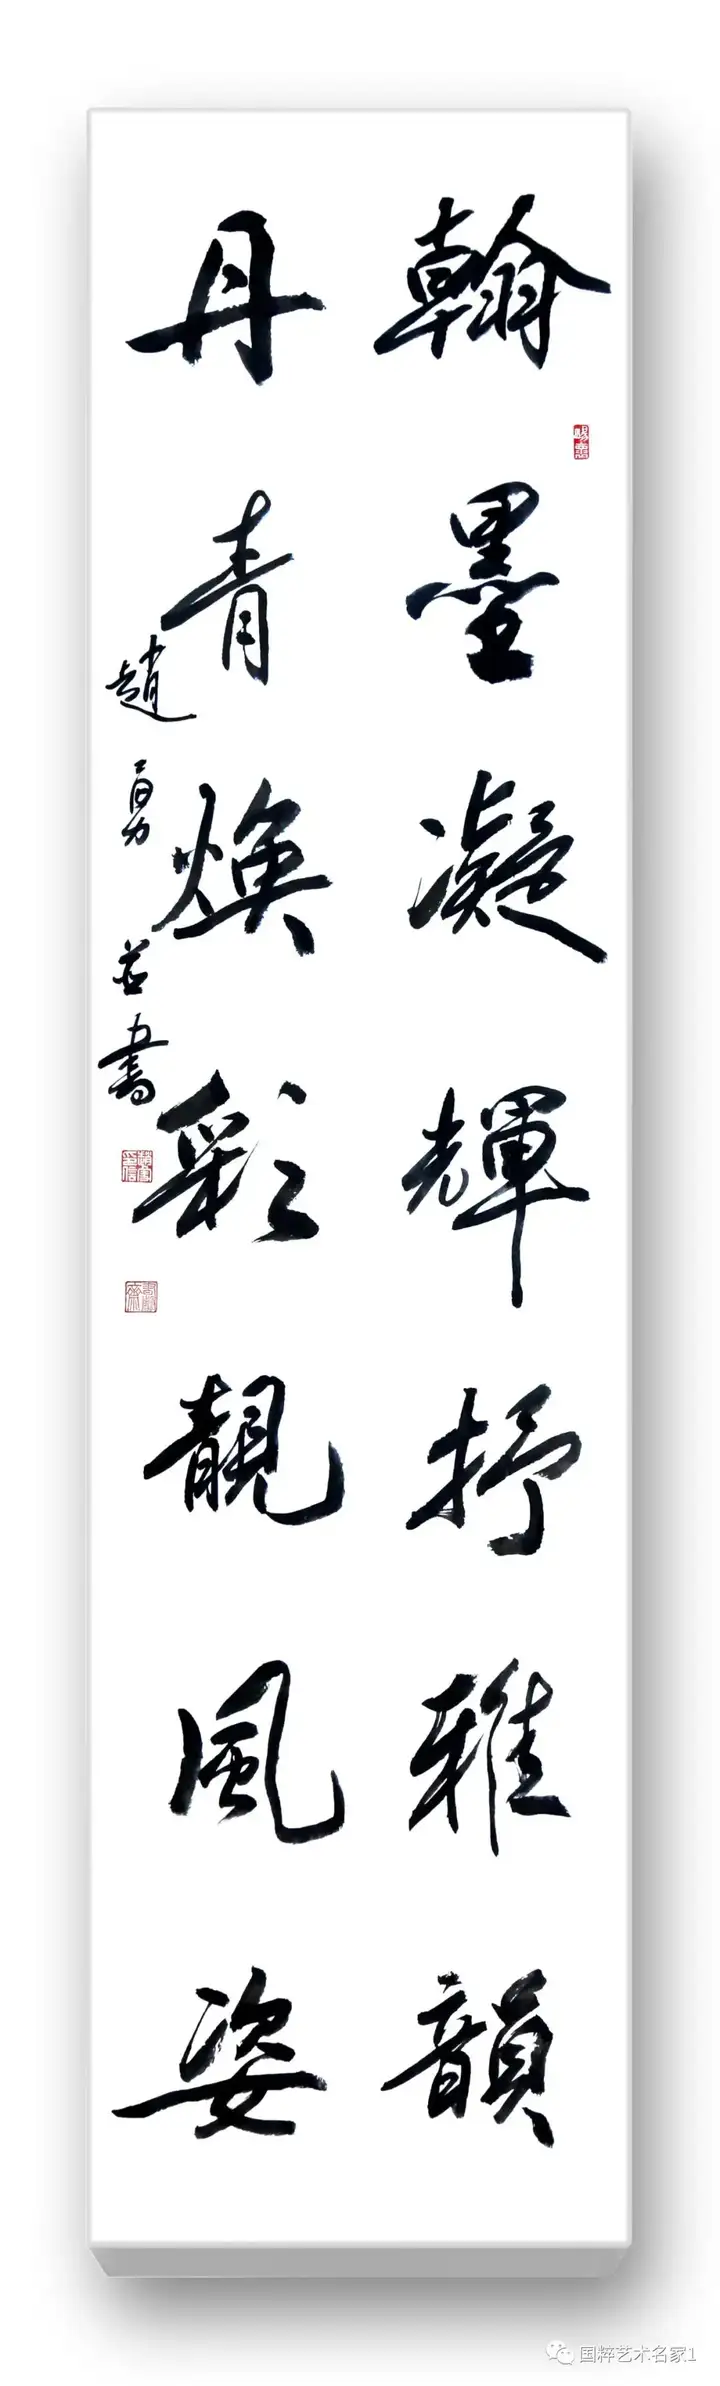 翰墨凝輝抒雅韻
丹青煥彩靚風姿
趙勇並書
国粹艺术名家1